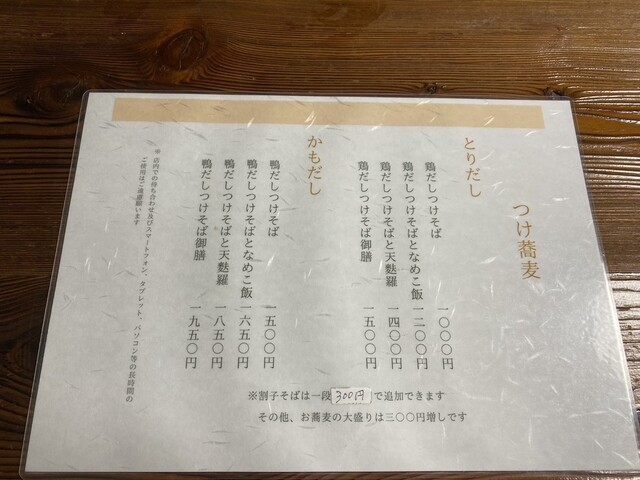 つけ蕎麦
とりだし
鶏だしつけそば 一〇〇〇円
鶏だしつけそばとなめこ飯 一二〇〇円
鶏だしつけそばと天麩羅 一四〇〇円
鶏だしつけそば御膳 一五〇〇円
かもだし
鴨だしつけそば 一五〇〇円
鴨だしつけそばとなめこ飯 一六五〇円
鴨だしつけそばと天麩羅 一八五〇円
鴨だしつけそば御膳 一九五〇円
※割子そばは一段300円で追加できます
その他、お蕎麦の大盛りは三〇〇円増しです
※ 店内での待ち合わせ及びスマートフォン、タブレット、パソコン等の長時間の
ご使用はご遠慮願います